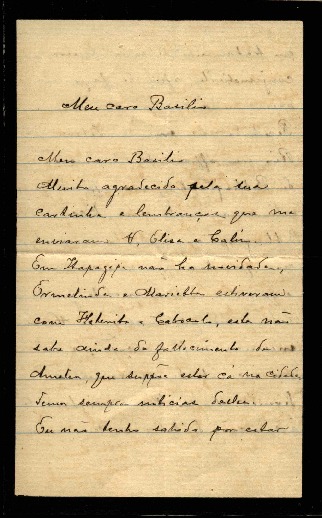 Meu caro Basilio
Meu caro Basilio
Muito agradecido pela sua
cartinha e lembranças que me
enviaram V, Elisa e Calú.
Em Itapagipe não ha novidade,
Ermelinda e Marietta estiveram
com e Caboclo, esta não
sabe ainda do fallecimento de
Amelia, que suppõe estar cá na cidade.
Temos sempre noticias della.
Eu não tenho sahido por estar